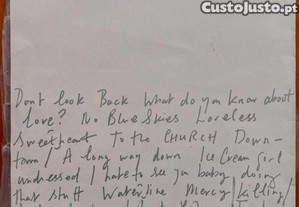 Custojusto.pt
Dont look Back What do you know about
love? No Blue Skies Loveless
Sweetheart To the CHURCH Down-
town / A long way down / Ice Cream Girl
undressed / I hate to see you baby doing
that stuff Waterline Mercy / Killing /